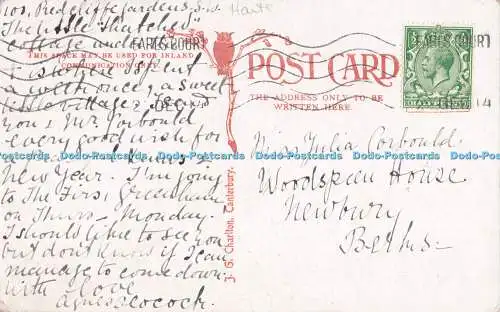 100, Redcliffe Gardens S.W.
Hants
The little "Thatched"
cottage under
EARLS COURT
EARLS COURT
THIS SPACE MAY BE USED FOR INLAND
COMMUNICATION ONLY.
POST CARD
THE ADDRESS ONLY TO BE
WRITTEN HERE.
14
is where I spent
a week once, a sweet
little village. I send
you & Mrs Corbould
every good wish for
New Year. I'm going
to The Firs, Greenham
on Thurs – Monday.
I should like to see you
but don't know if I can
manage to come down.
With love
Agnes Cocock.
J. G. Charlton, Canterbury.
Miss Julia Corbould
Woodspean House
Newbury
Berks
Dodo-Postcards.com Dodo-Postcards.com Dodo-Postcards.com Dodo-Postcards.com